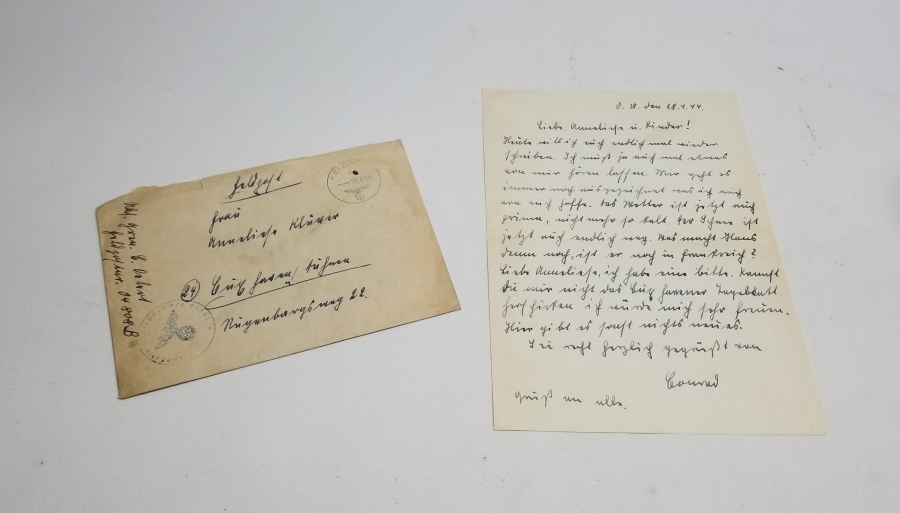 Feldpost
Frau
Anneliese Klüver
(24) Cuxhaven / Duhnen
Rugenbargsweg 22.
Abs. Gren. C.
Feldpostnr. 04808B
O. U. den 28.4.44.
Liebe Anneliese u. Kinder!
Heute will ich euch endlich mal wieder
schreiben. Ich muß ja auch mal etwas
von mir hören lassen. Mir geht es
immer noch ausgezeichnet was ich auch
von euch hoffe. Das Wetter ist jetzt auch
prima, nicht mehr so kalt. Der Schnee ist
jetzt auch endlich weg. Was macht Hans
denn noch, ist er noch in Frankreich?
Liebe Anneliese, ich habe eine bitte. Kannst
Du mir nicht das Cuxhavener Tageblatt
herschicken ich würde mich sehr freuen.
Hier gibt es sonst nichts neues.
Sei recht herzlich gegrüßt von
Conrad
Gruß an alle.